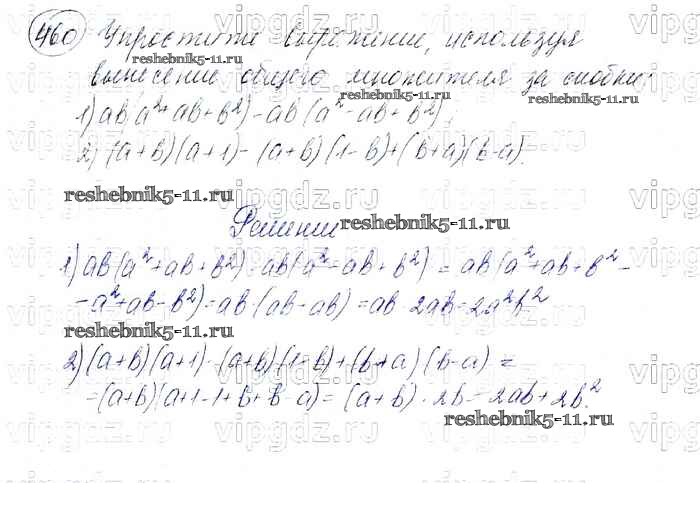 460 Упростите выражение, используя
вынесение общего множителя за скобки:
reshebnik5-11.ru
1) ab(a²+ab+b²)-ab(a²-ab+b²);
2) (a+b)(a+1)-(a+b)(1-b)+(b+a)(b-a).
reshebnik5-11.ru
Решение
reshebnik5-11.ru
1) ab(a²+ab+b²)-ab(a²-ab+b²) = ab(a²+ab+b²-
-a²+ab-b²)=ab·(ab-ab)=ab·2ab=2a²b²
reshebnik5-11.ru
2) (a+b)(a+1)-(a+b)(1-b)+(b+a)(b-a) =
=(a+b)(a+1-1+b+b-a)=(a+b)·2b=2ab+2b².
reshebnik5-11.ru
vipgdz.ru